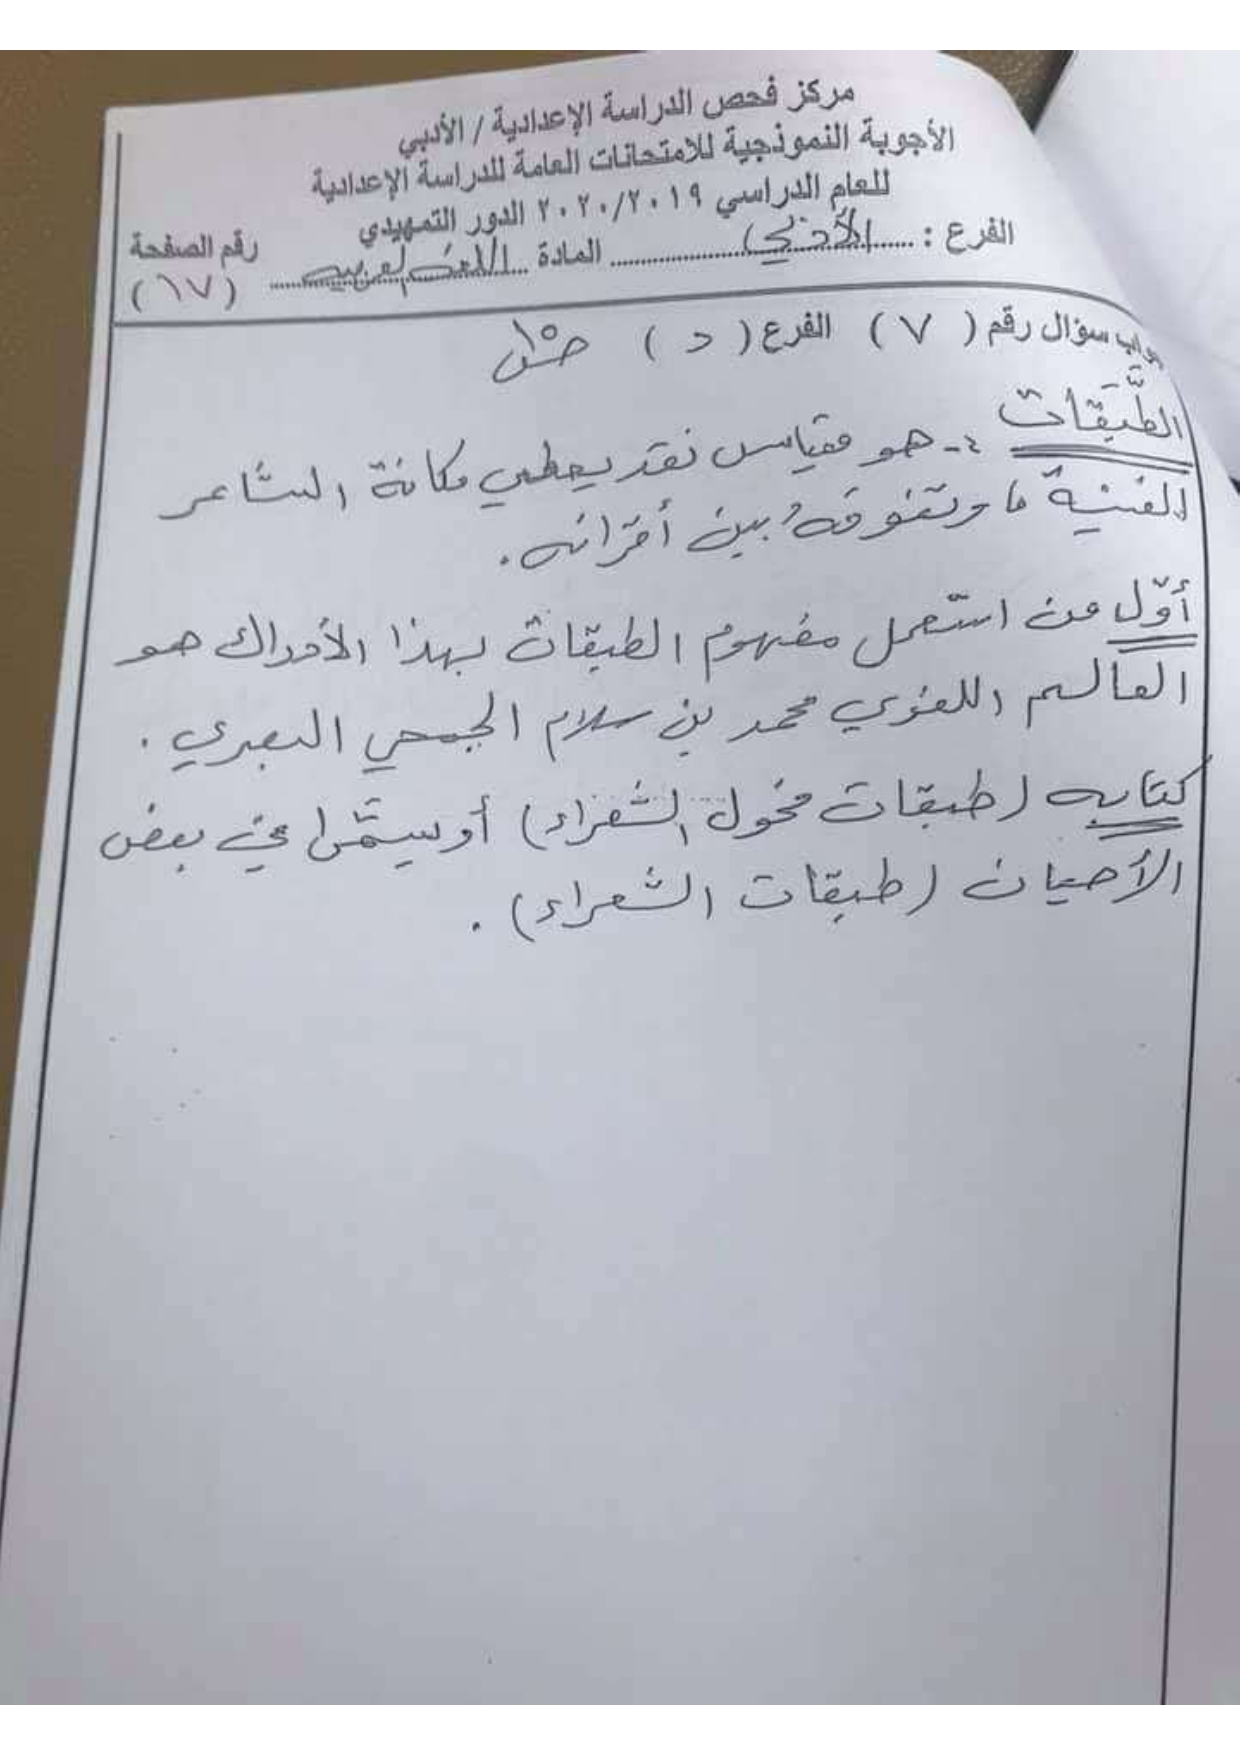 مركز فحص الدراسة الإعدادية / الأدبي
الأجوبة النموذجية للامتحانات العامة للدراسة الإعدادية
للعام الدراسي ٢٠١٩/٢٠٢٠ الدور التمهيدي
الفرع : الأدبي المادة اللغة العربية رقم الصفحة
(١٧)
جواب سؤال رقم ( ٧ ) الفرع ( د )
الطَّبقات :- هو مقياس نقد يعطي مكانة الشاعر
الفنية ما وتفوقه بين أقرانه.
أوّل من استعمل مفهوم الطبقات بهذا الأدراك هو
العالم اللغوي محمد بن سلام الجمحي البصري.
كتابه (طبقات فحول الشعراء) أو يسمّى في بعض
الأحيان (طبقات الشعراء).